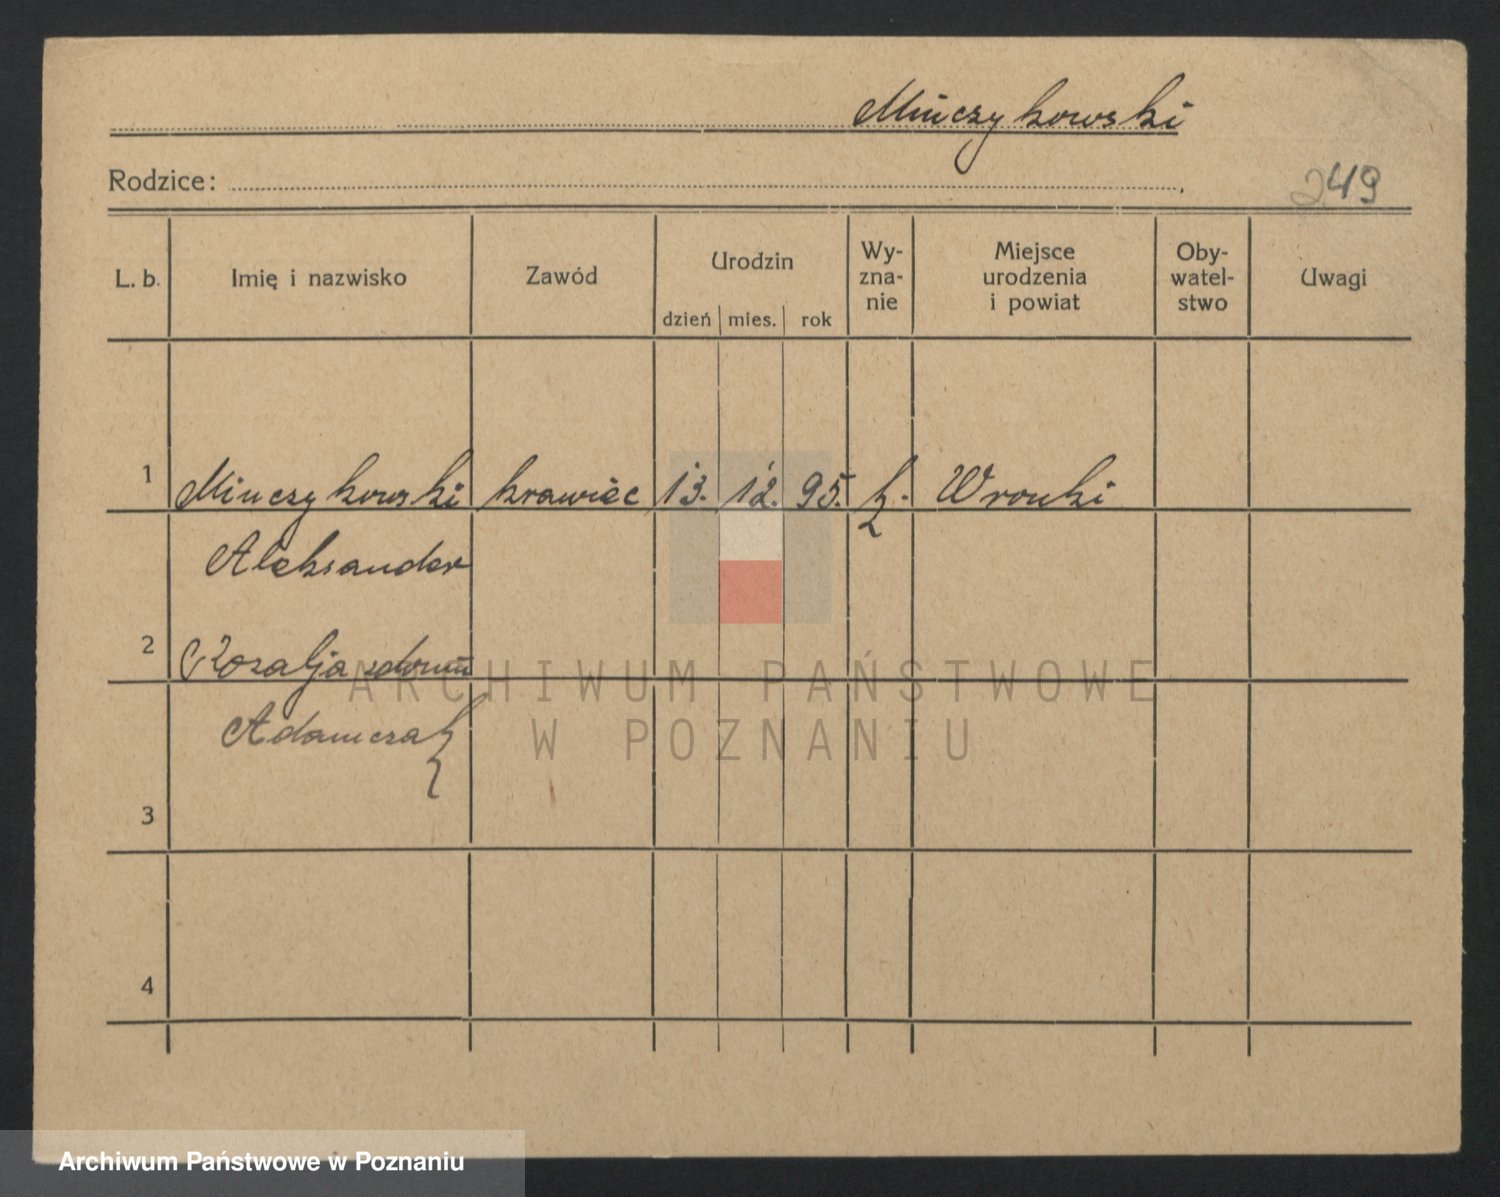 Minczykowski
Rodzice:
249
L. b.
Imię i nazwisko
Zawód
Urodzin
dzień mies. rok
Wy-
zna-
nie
Miejsce
urodzenia
i powiat
Oby-
watel-
stwo
Uwagi
1 Minczykowski krawiec 13. 12. 95. k. Wronki
Aleksander
2 Rozalja zdomu
Adamczak
3
4
ARCHIWUM PAŃSTWOWE
W POZNANIU
Archiwum Państwowe w Poznaniu